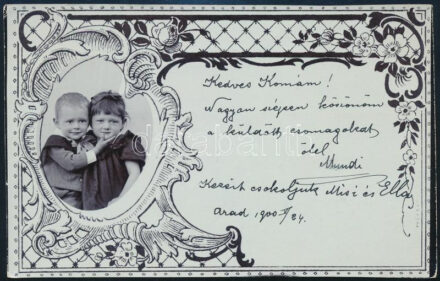 Kedves Komám!
Nagyon szépen köszönöm
a küldött csomagokat
ölel
Mundi
Kezeit csokoljuk Misi és Ella
Arad 1900 24.
darabanth